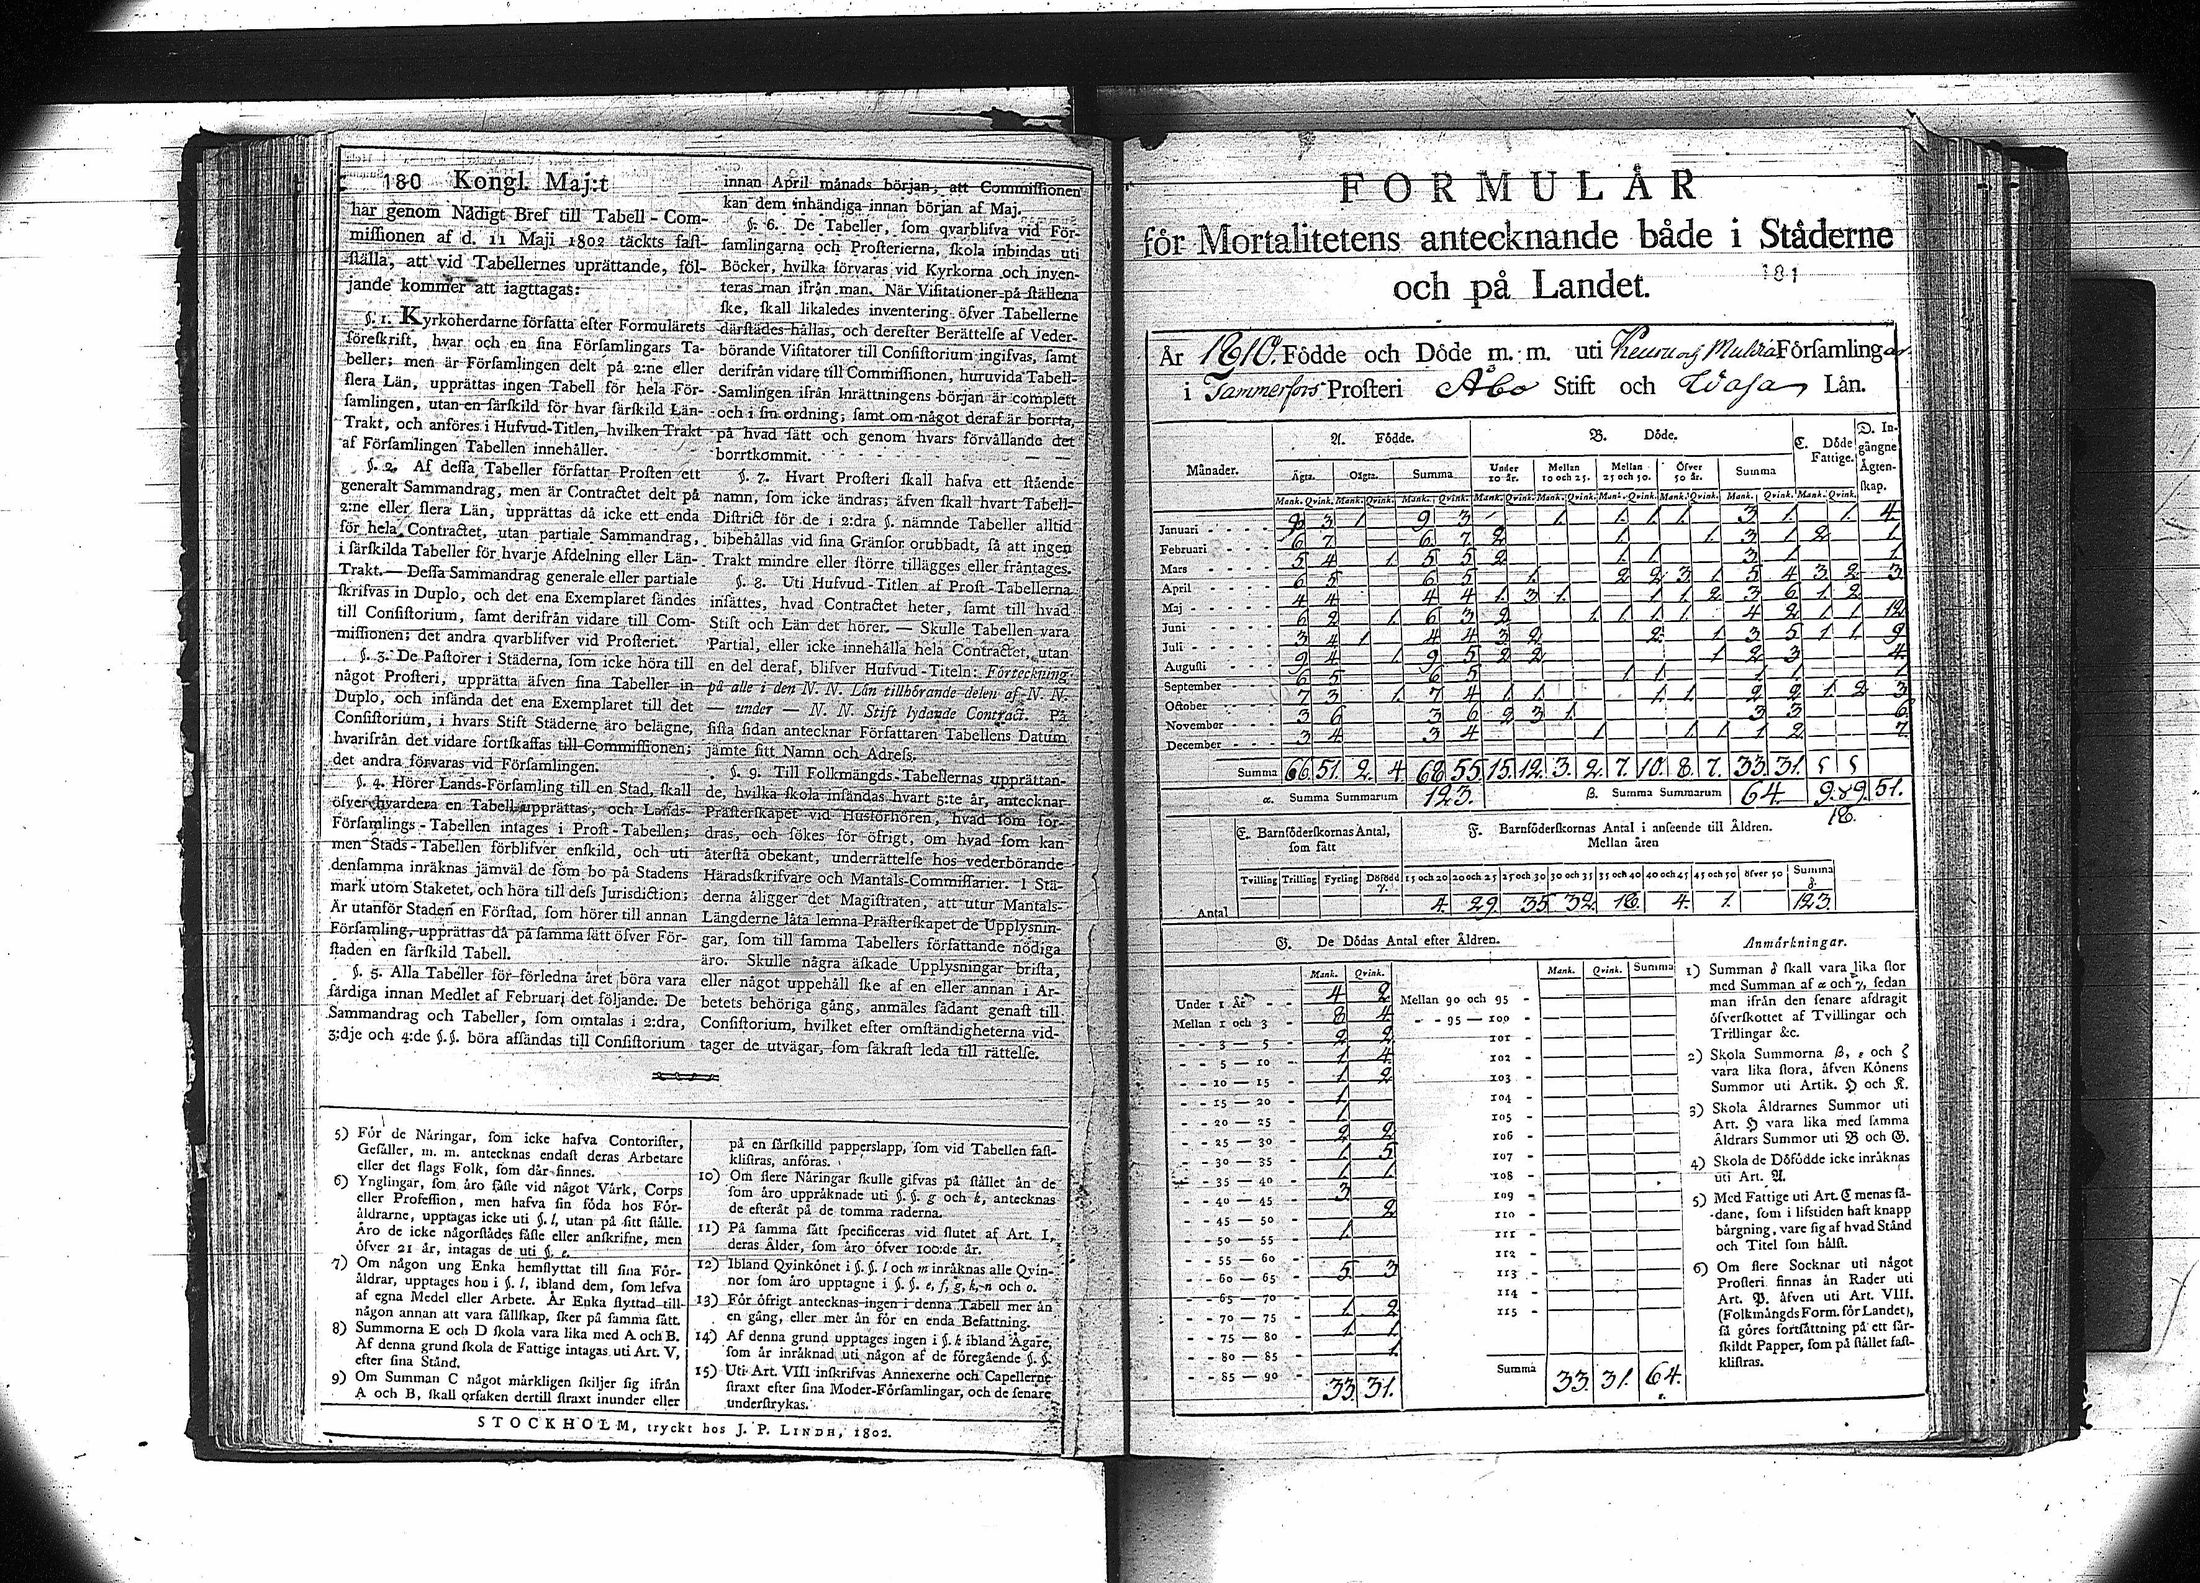 180 Kongl. Maj:t
har genom Nådigt Bref till Tabell-Com-
miſſionen af d. 11 Maji 1802 täckts faſt-
ſtälla, att vid Tabellernes uprättande, föl-
jande kommer att iagttagas:
§. 1. Kyrkoherdarne författa efter Formulärets
föreſkrift, hvar och en ſina Förſamlingars Ta-
beller; men är Förſamlingen delt på 2:ne eller
flera Län, upprättas ingen Tabell för hela För-
ſamlingen, utan en färſkild för hvar färſkild Län-
Trakt, och anföres i Hufvud-Titlen, hvilken Trakt
af Förſamlingen Tabellen innehåller.
§. 2. Af deſſa Tabeller författar Proſten ett
generalt Sammandrag, men är Contractet delt på
2:ne eller flera Län, upprättas då icke ett enda
för hela Contractet, utan partiale Sammandrag,
i färſkilda Tabeller för hvarje Afdelning eller Län-
Trakt.— Deſſa Sammandrag generale eller partiale
ſkrifvas in Duplo, och det ena Exemplaret ſändes
till Conſiſtorium, ſamt derifrån vidare till Com-
miſſionen; det andra qvarblifver vid Proſteriet.
§. 3. De Paſtorer i Städerna, ſom icke höra till
något Proſteri, upprätta äfven ſina Tabeller in
Duplo, och inſända det ena Exemplaret till det
Conſiſtorium, i hvars Stift Städerne äro belägne,
hvarifrån det vidare fortſkaffas till Commiſſionen;
det andra förvaras vid Förſamlingen.
§. 4. Hörer Lands-Förſamling till en Stad, ſkall
öfver hvardera en Tabell upprättas, och Lands-
Förſamlings-Tabellen intages i Proſt-Tabellen;
men Stads-Tabellen förblifver enſkild, och uti
denſamma inräknas jämväl de ſom bo på Stadens
mark utom Staketet, och höra till deſs Jurisdiction;
Är utanför Staden en Förſtad, ſom hörer till annan
Förſamling, upprättas då på ſamma ſätt öfver För-
ſtaden en färſkild Tabell.
§. 5. Alla Tabeller för förledna året böra vara
färdiga innan Medlet af Februari det följande: De
Sammandrag och Tabeller, ſom omtalas i 2:dra,
3:dje och 4:de §.§. böra afſändas till Conſiſtorium
innan April månads början, att Commiſſionen
kan dem inhändiga innan början af Maj.
§. 6. De Tabeller, ſom qvarblifva vid För-
ſamlingarna och Proſterierna, ſkola inbindas uti
Böcker, hvilka förvaras vid Kyrkorna och inven-
teras man ifrån man. När Viſitationer på ſtällena
ſke, ſkall likaledes inventering öfver Tabellerne
därſtädes hållas, och derefter Berättelſe af Veder-
börande Viſitatorer till Conſiſtorium ingifvas, ſamt
derifrån vidare till Commiſſionen, huruvida Tabell-
Samlingen ifrån Inrättningens början är complett
och i ſin ordning; ſamt om något deraf är borrta,
på hvad ſätt och genom hvars förvållande det
borrtkommit.
§. 7. Hvart Proſteri ſkall hafva ett ſtående
namn, ſom icke ändras; äfven ſkall hvart Tabell-
Diſtrict för de i 2:dra §. nämnde Tabeller alltid
bibehållas vid ſina Gränſor orubbadt, ſå att ingen
Trakt mindre eller ſtörre tillägges eller fråntages.
§. 8. Uti Hufvud-Titlen af Proſt-Tabellerna
inſättes, hvad Contractet heter, ſamt till hvad
Stift och Län det hörer. — Skulle Tabellen vara
Partial, eller icke innehålla hela Contractet, utan
en del deraf, blifver Hufvud-Titeln: Förteckning
på alle i den N. N. Län tillhörande delen af N. N.
— under — N. N. Stift lydande Contract. På
ſiſta ſidan antecknar Författaren Tabellens Datum
jämte ſitt Namn och Adreſs.
§. 9. Till Folkmängds-Tabellernas upprättan-
de, hvilka ſkola inſändas hvart 5:te år, antecknar
Präſterſkapet vid Husförhören, hvad ſom for-
dras, och ſökes för öfrigt, om hvad ſom kan
återſtå obekant, underrättelſe hos vederbörande
Häradsſkrifvare och Mantals-Commiſſarier. I Stä-
derna åligger det Magiſtraten, att utur Mantals-
Längderne låta lemna Präſterſkapet de Upplyſnin-
gar, ſom till ſamma Tabellers författande nödiga
äro. Skulle några äſkade Upplyſningar briſta,
eller något uppehåll ſke af en eller annan i Ar-
betets behöriga gång, anmäles ſådant genaſt till
Conſiſtorium, hvilket efter omſtändigheterna vid-
tager de utvägar, ſom ſäkraſt leda till rättelſe.
5) För de Näringar, ſom icke hafva Contoriſter,
Geſäller, m. m. antecknas endaſt deras Arbetare
eller det ſlags Folk, ſom där finnes.
6) Ynglingar, ſom äro fäſte vid något Värk, Corps
eller Profeſſion, men hafva ſin föda hos För-
äldrarne, upptagas icke uti §. l, utan på ſitt ſtälle.
Äro de icke någorſtädes fäſte eller anſkrifne, men
öfver 21 år, intagas de uti §. e.
7) Om någon ung Enka hemflyttat till ſina För-
äldrar, upptages hon i §. l, ibland dem, ſom lefva
af egna Medel eller Arbete. Är Enka flyttad till
någon annan att vara fällſkap, ſker på ſamma ſätt.
8) Summorna E och D ſkola vara lika med A och B.
Af denna grund ſkola de Fattige intagas uti Art. V,
efter ſina Stånd.
9) Om Summan C något märkligen ſkiljer ſig ifrån
A och B, ſkall orſaken dertill ſtraxt inunder eller
på en färſkilld papperslapp, ſom vid Tabellen faſt-
kliſtras, anföras.
10) Om flere Näringar ſkulle gifvas på ſtället än de
ſom äro uppräknade uti §. §. g och k, antecknas
de efteråt på de tomma raderna.
11) På ſamma ſätt ſpecificeras vid ſlutet af Art. I,
deras Ålder, ſom äro öfver 100:de år.
12) Ibland Qvinkönet i §. §. l och m inräknas alle Qvin-
nor ſom äro upptagne i §. §. e, f, g, k, n och o.
13) För öfrigt antecknas ingen i denna Tabell mer än
en gång, eller mer än för en enda Befattning.
14) Af denna grund upptages ingen i §. k ibland Ägare,
ſom är inräknad uti någon af de föregående §. §.
15) Uti Art. VIII inſkrifvas Annexerne och Capellerne
ſtraxt efter ſina Moder-Förſamlingar, och de ſenare
underſtrykas.
STOCKHOLM, tryckt hos J. P. LINDH, 1802.
FORMULÄR
för Mortalitetens antecknande både i Städerne
och på Landet.
181
År 1810. Födde och Döde m. m. uti Keuru och Multia Förſamlingar
i Tammerfors Proſteri Åbo Stift och Waſa Län.
Månader. A. Födde. B. Döde. C. Döde Fattige. D. Ingångne Ägtenſkap.
Ägta. Oägta. Summa Under 10 år. Mellan 10 och 25. Mellan 25 och 50. Öfver 50 år. Summa
Mank. Qvink. Mank. Qvink. Mank. Qvink. Mank. Qvink. Mank. Qvink. Mank. Qvink. Mank. Qvink. Mank. Qvink. Mank. Qvink.
Januari 8 3 1 9 3 1. 1. 1. 1. 3 1. 1. 4
Februari 6 7 6 7 2 1 1. 3 1 2 1
Mars 5 4 1 5 5 2 1 1 3 1 1
April 6 5 6 5 1. 2 2 3 1 5 4 3 2 3
Maj 4 4 4 4 1. 3 1. 1 1. 2 3 6 1 2
Juni 6 2 1 6 3 2 1 1. 1. 1. 4 2 1 1 12
Juli 3 4 1 4 4 3 2 2 1 3 5 1 1 9
Auguſti 9 4 1 9 5 2 2 1 2 3 4
September 6 5 6 5 1 1 1 1 1
October 7 3 1. 7 4 1 1 1 1 2 2 1 2 3
November 3 6 3 6 2 3 1. 3 3 6
December 3 4 3 4 1 1 1 1 2 7
Summa 66 51. 2. 4. 68 55 15. 12. 3. 2. 7. 10. 8. 7. 33. 31.
α. Summa Summarum 123. β. Summa Summarum 64. 9. 9. 51.
18.
E. Barnföderſkornas Antal, ſom fått
F. Barnföderſkornas Antal i anſeende till Åldren.
Mellan åren
Tvilling Trilling Fyrling Döfödd γ. 15 och 20 20 och 25 25 och 30 30 och 35 35 och 40 40 och 45 45 och 50 öfver 50 Summa δ.
Antal 4. 29. 35 32. 18. 4. 1. 123.
G. De Dödas Antal efter Åldren.
Mank. Qvink.
Under 1 År 4 2
Mellan 1 och 3 8 4
3 — 5 2 2
5 — 10 1 4
10 — 15 1 2
15 — 20 1
20 — 25 1
25 — 30 2 2
30 — 35 1 5
35 — 40 1 1
40 — 45 3
45 — 50 2
50 — 55 1.
55 — 60
60 — 65 5 3
65 — 70
70 — 75 1 2
75 — 80 1 1
80 — 85 1
85 — 90
33. 31.
Mank. Qvink. Summa
Mellan 90 och 95
95 — 100
101
102
103
104
105
106
107
108
109
110
111
112
113
114
115
Summa 33. 31. 64.
ε.
Anmärkningar.
1) Summan δ ſkall vara lika ſtor
med Summan af α och γ, ſedan
man ifrån den ſenare afdragit
öfverſkottet af Tvillingar och
Trillingar &c.
2) Skola Summorna β, ε och ζ
vara lika ſtora, äfven Könens
Summor uti Artik. H och K.
3) Skola Åldrarnes Summor uti
Art. H vara lika med ſamma
Åldrars Summor uti B och G.
4) Skola de Döfödde icke inräknas
uti Art. A.
5) Med Fattige uti Art. C menas få-
dane, ſom i lifstiden haft knapp
bärgning, vare ſig af hvad Stånd
och Titel ſom hälſt.
6) Om flere Socknar uti något
Proſteri finnas än Rader uti
Art. P. äfven uti Art. VIII.
(Folkmängds Form. för Landet),
ſå göres fortſättning på ett fär-
ſkildt Papper, ſom på ſtället faſt-
kliſtras.